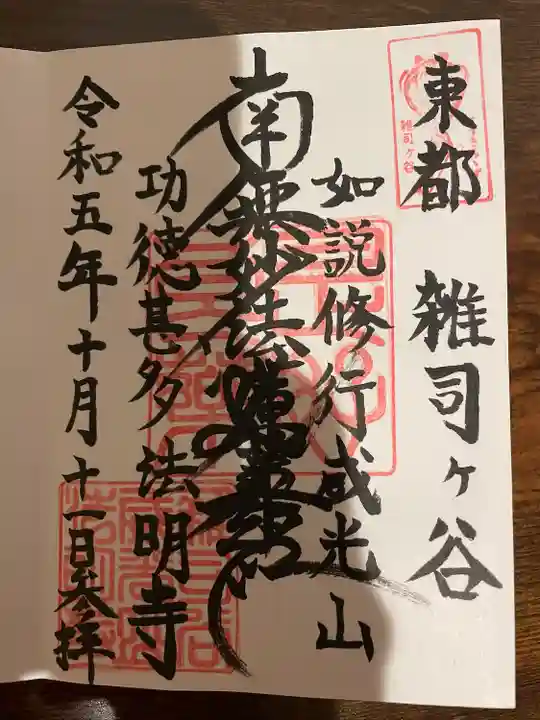 東都 雑司ヶ谷
雑司ヶ谷
如説修行威光山
南無妙法蓮華経
功徳甚多法明寺
令和五年十月十一日参拝